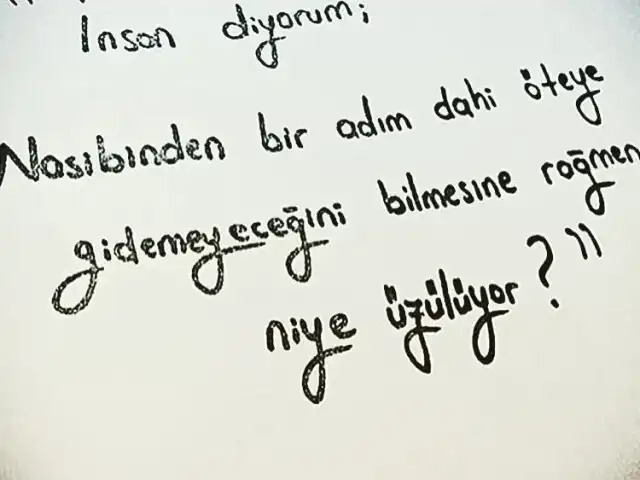 "
İnsan diyorum;
Nasibinden bir adım dahi öteye
gidemeyeceğini bilmesine rağmen
niye üzülüyor?"